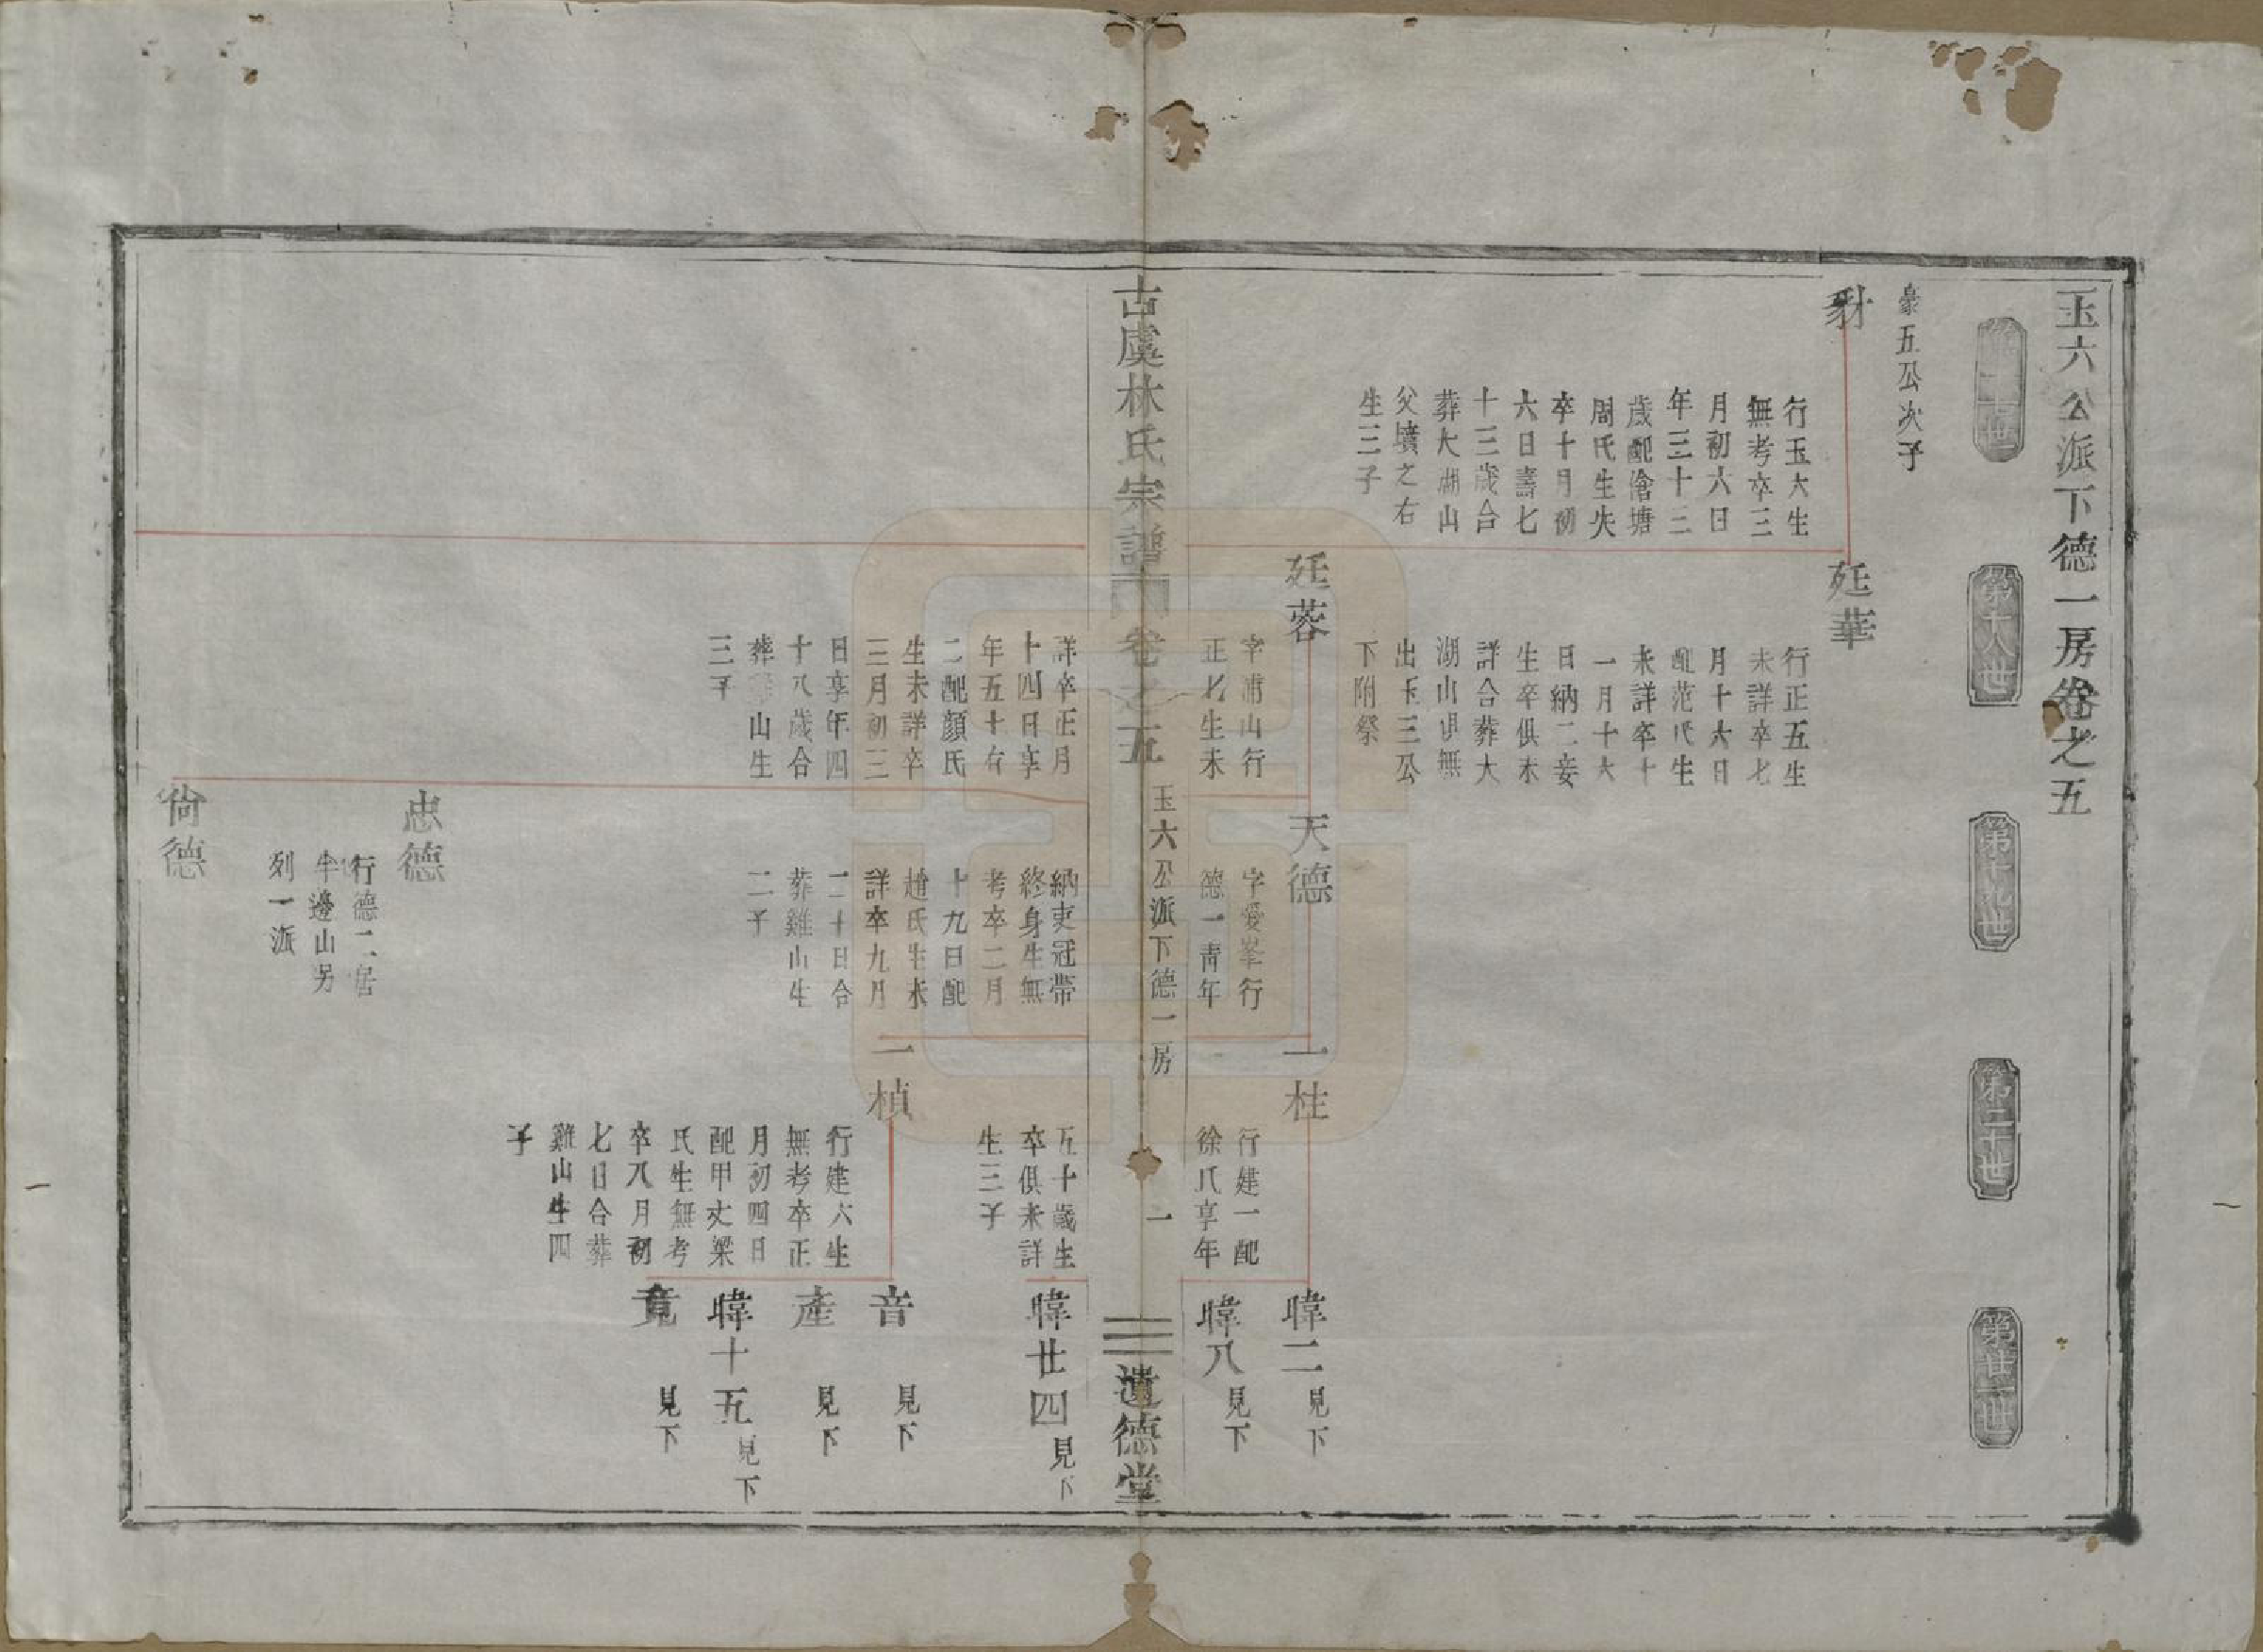 玉六公派下德一房卷之五
第十七世
第十八世
第十九世
第二十世
第廿一世
彖五公次子
豺
行玉六生
無考卒三
月初六日
年三十三
歲配傖塘
周氏生失
卒十月初
六日壽七
十三歲合
葬大湖山
父墳之右
生三子
廷華
行正五生
未詳卒七
月十六日
配范氏生
未詳卒十
一月十六
日納二妾
生卒俱未
詳合葬大
湖山俱無
出玉三公
下附祭
廷蓉
字浦山行
正七生未
詳卒正月
十四日享
年五十有
二配顏氏
生未詳卒
三月初三
日享年四
十八歲合
葬雞山生
三子
天德
字愛峯行
德一靑年
納吏冠帶
終身生無
考卒二月
十九日配
趙氏生未
詳卒九月
二十日合
葬雞山生
二子
忠德
行德二居
半邊山另
列一派
尙德
一柱
行建一配
徐氏享年
五十歲生
卒俱未詳
生三子
一楨
行建六生
無考卒正
月初四日
配甲丈梁
氏生無考
卒八月初
七日合葬
雞山生四
子
暐二 見下
暐八 見下
暐廿四 見下
音 見下
產 見下
暐十五 見下
竟 見下
古虞林氏宗譜 卷之五 玉六公派下德一房 一 遺德堂